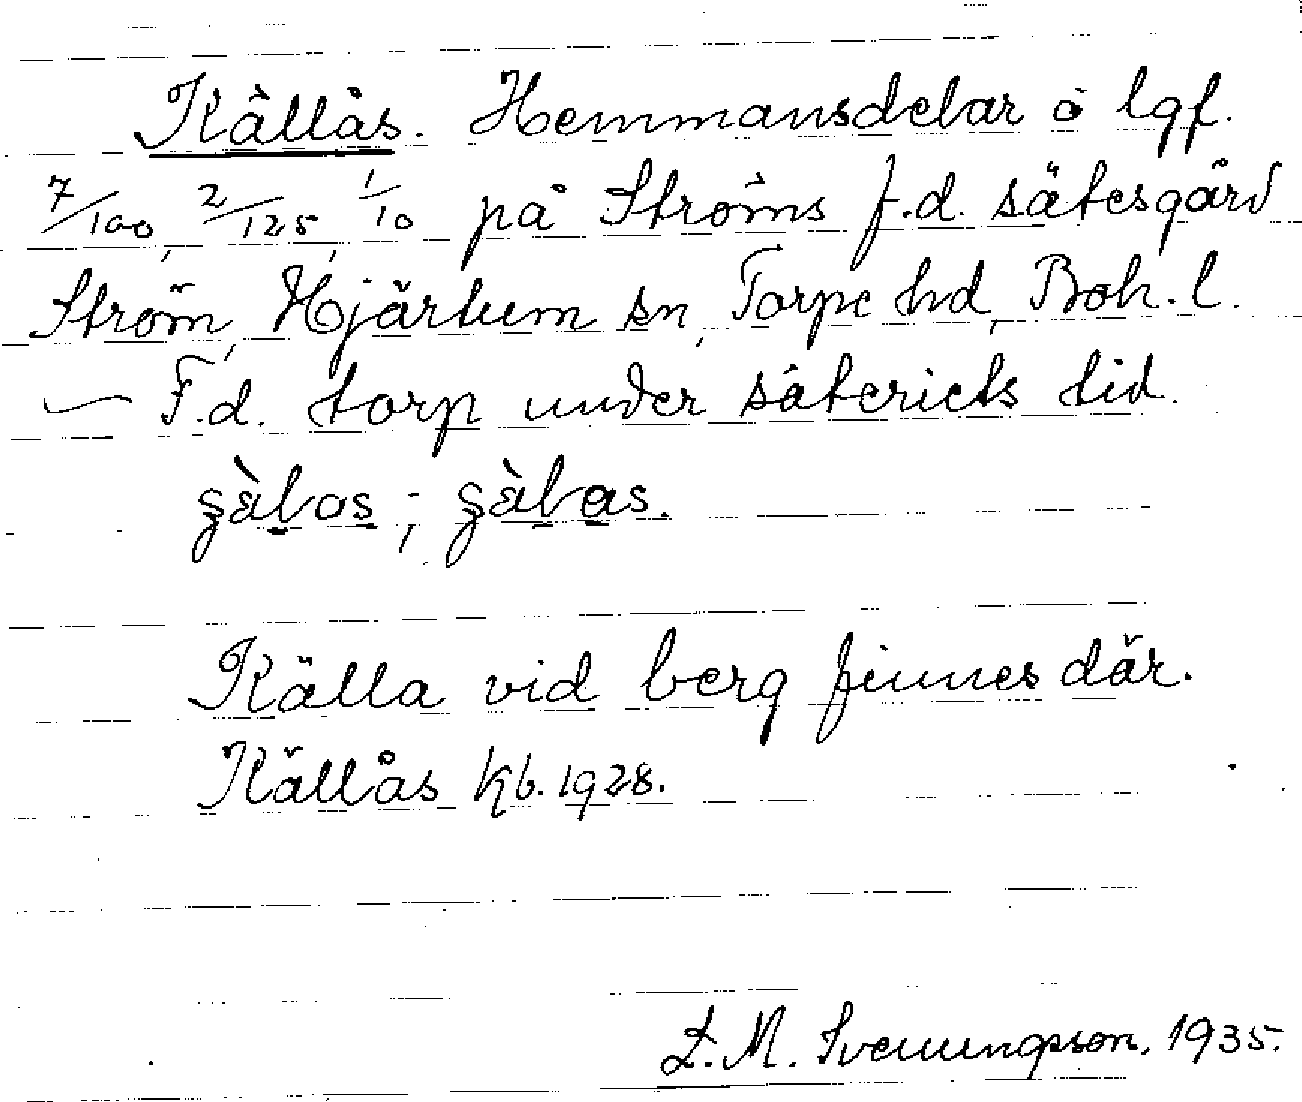 Källås. Hemmansdelar o lgf.
7/100, 2/125, 1/10 på Ströms f.d. sätesgård
Ström, Hjärtum sn, Torpe hd, Boh. l.
— F.d. torp under säteriets tid.
Källa vid berg finnes där.
Källås kb. 1928.
M. Svenungsson. 1935.